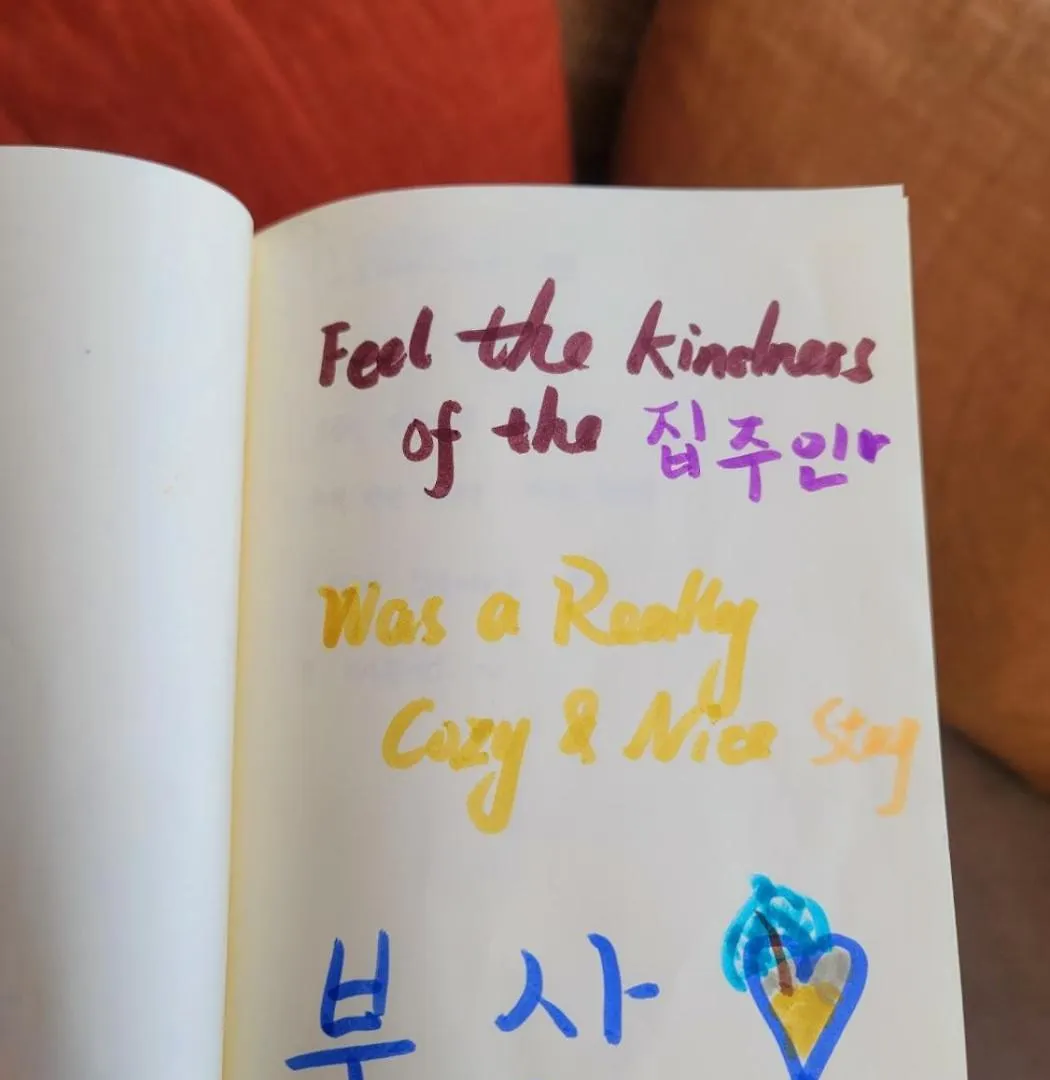 Feel the kindness
of the 집주인
Was a Really
Cozy & Nice Stay
부 사